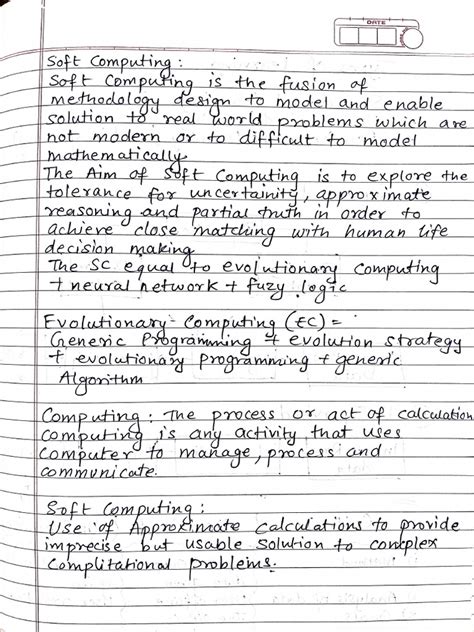 DATE
Soft Computing :
Soft Computing is the fusion of
methodology design to model and enable
solution to real world problems which are
not modern or to difficult to model
mathematically
The Aim of Soft Computing is to explore the
tolerance for uncertainity, approximate
reasoning and partial truth in order to
achieve close matching with human life
decision making
The SC equal to evolutionary computing
+ neural network + fuzy logic
Evolutionary-Computing (EC) =
Generic Programming + evolution strategy
+ evolutionary programming + generic
Algorithm
Computing : The process or act of calculation
Computing is any activity that uses
Computer to manage, process and
communicate.
Soft Computing :
Use of Approximate calculations to provide
imprecise but usable solution to complex
Complitational problems.